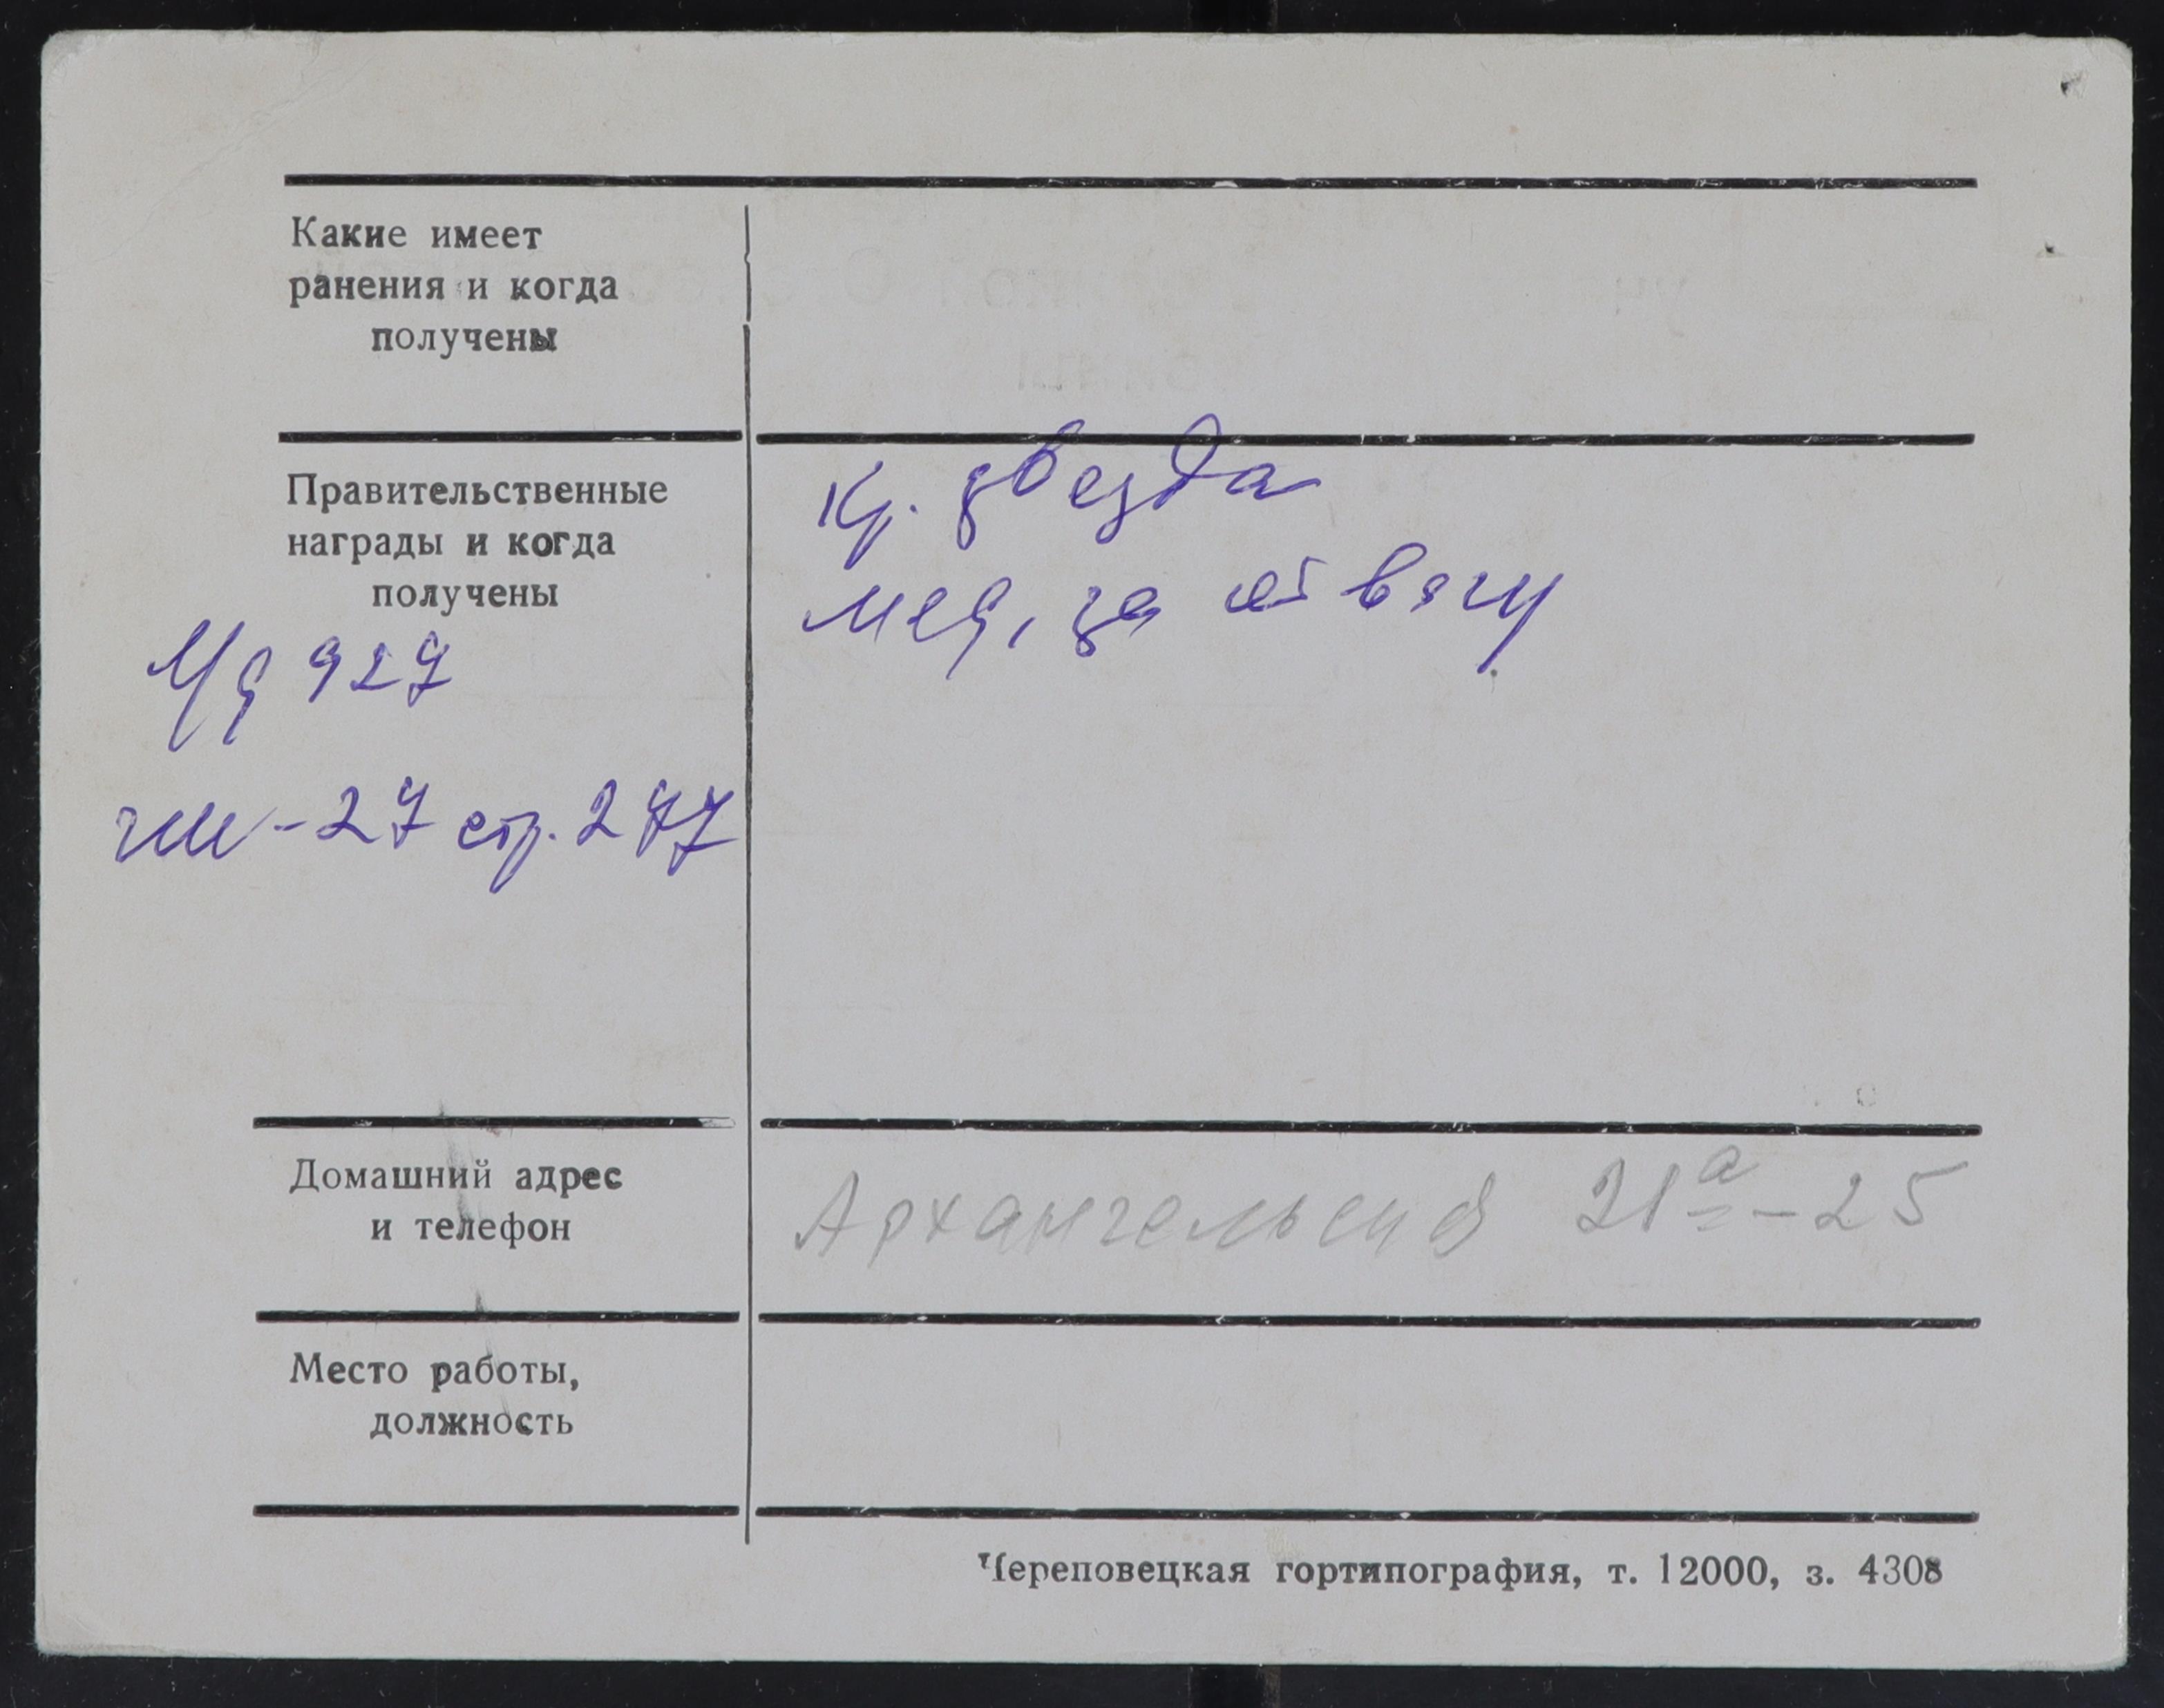 Какие имеет
ранения и когда
получены
Правительственные
награды и когда
получены
Кр. звезда
мед, за отвагу
У/д 927
гим-27 стр. 277
Домашний адрес
и телефон
Архангельская 21а-25
Место работы,
должность
Череповецкая гортипография, т. 12000, з. 4308